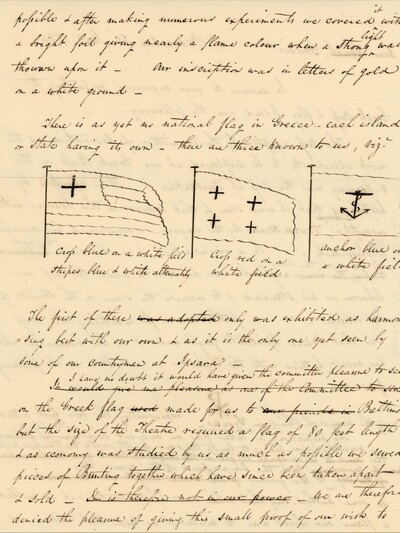 it
possible & after making numerous experiments we covered with
a bright foil giving nearly a flame colour when a strong light was
thrown upon it — Our inscription was in letters of gold
on a white ground —
There is as yet no national flag in Greece – each island
or State having its own – there are three known to us, viz:
Crop blue on a white field
stripes blue & white alternately
Crop red on a
white field
anchor blue on
a white field
The first of these was adopted only was exhibited as harmon
=sing best with our own & as it is the only one yet seen by
some of our countrymen at Ipsara —
I have no doubt it would have given the committee pleasure to see
It would give me pleasure as one of the Committee to send
on the Greek flag used made for us to our friends in Baltimo
but the size of the Theatre required a flag of 80 feet length
& as economy was studied by us as much as possible we sewed
pieces of Bunting together which have since been taken apart
& sold — It is therefore not in our power — We are therefore
denied the pleasure of giving this small proof of our wish to